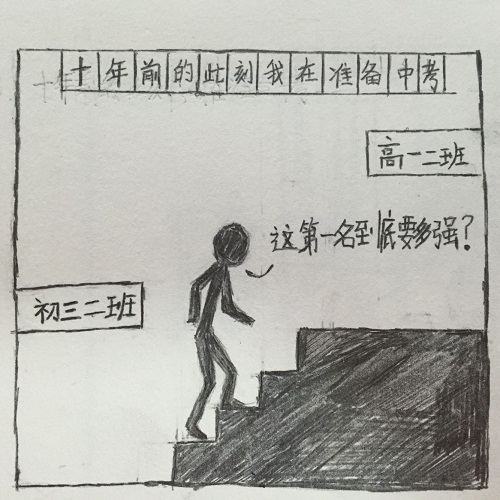 十年前的此刻我在准备中考
高一二班
这第一名到底要多强？
初三二班